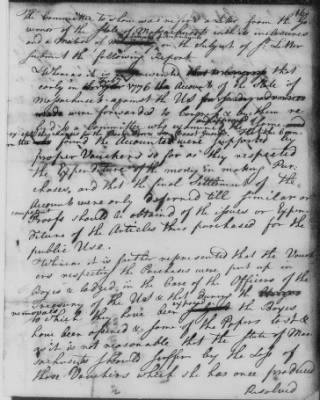 The Committee to whom was referred a Letter from the Go
vernor of the State of Massachusetts with its inclosures
and a motion of on the subject of sd. Letter
submit the following Report
Whereas it is represented that
early in 1776 the Account of the State of
Massachusetts against the US for sundry advances
made were forwarded to Congress & by them re
ferred to a Committee who examined the same and
found the Accounts were supported by
proper Vouchers so far as they respected
the expenditure of the money in making Pur
chases, and that the final Settlement of the
Account were only deferred till similar or
competent
Proofs should be obtained of the Issues or expen
diture of the Articles thus purchased for the
public Use.
Whereas it is further represented that the Vouch
ers respecting the Purchases were put up in
Boxes & lodged in the care of the Officers of the
Treasury of the US & that during the
removals to which they have been exposed the Boxes
have been opened & some of the Papers lost &
as it is not reasonable that the State of Mas
sachusetts should suffer by the loss of
those Vouchers which she has once produced
Resolved